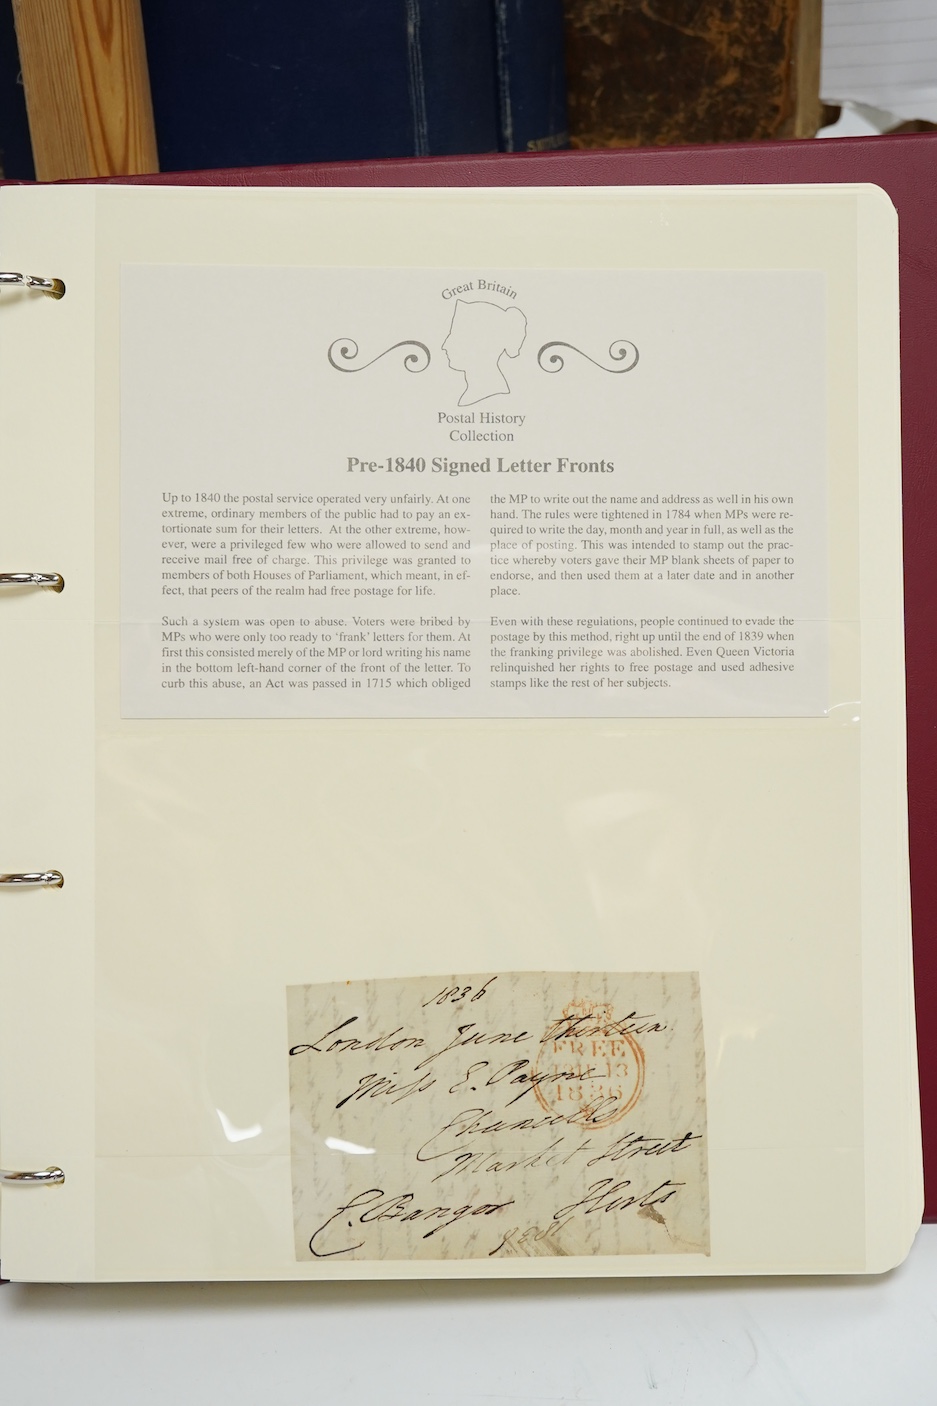 Great Britain
Postal History
Collection
Pre-1840 Signed Letter Fronts
Up to 1840 the postal service operated very unfairly. At one
extreme, ordinary members of the public had to pay an ex-
tortionate sum for their letters. At the other extreme, how-
ever, were a privileged few who were allowed to send and
receive mail free of charge. This privilege was granted to
members of both Houses of Parliament, which meant, in ef-
fect, that peers of the realm had free postage for life.
Such a system was open to abuse. Voters were bribed by
MPs who were only too ready to 'frank' letters for them. At
first this consisted merely of the MP or lord writing his name
in the bottom left-hand corner of the front of the letter. To
curb this abuse, an Act was passed in 1715 which obliged
the MP to write out the name and address as well in his own
hand. The rules were tightened in 1784 when MPs were re-
quired to write the day, month and year in full, as well as the
place of posting. This was intended to stamp out the prac-
tice whereby voters gave their MP blank sheets of paper to
endorse, and then used them at a later date and in another
place.
Even with these regulations, people continued to evade the
postage by this method, right up until the end of 1839 when
the franking privilege was abolished. Even Queen Victoria
relinquished her rights to free postage and used adhesive
stamps like the rest of her subjects.
1836
London June thirteen
FREE
13
1836
Miss E. Payne
Market Street
C. Bangor Herts